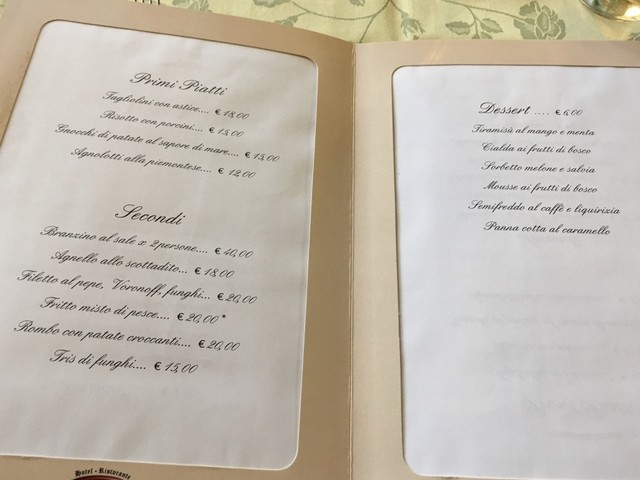 Primi Piatti
Tagliolini con astice.... € 18,00
Risotto con porcini.... € 15,00
Gnocchi di patate al sapore di mare.... € 15,00
Agnolotti alla piemontese.... € 12,00
Secondi
Branzino al sale x 2persone.... € 40,00
Agnello allo scottadito... € 18,00
Filetto al pepe, Voronoff, funghi... € 20,00
Fritto misto di pesce.... € 20,00*
Rombo con patate croccanti.... € 20,00
Tris di funghi.... € 15,00
Hotel - Ristorante
Dessert .... € 6,00
Tiramisù al mango e menta
Cialda ai frutti di bosco
Sorbetto melone e salvia
Mousse ai frutti di bosco
Semifreddo al caffè e liquirizia
Panna cotta al caramello